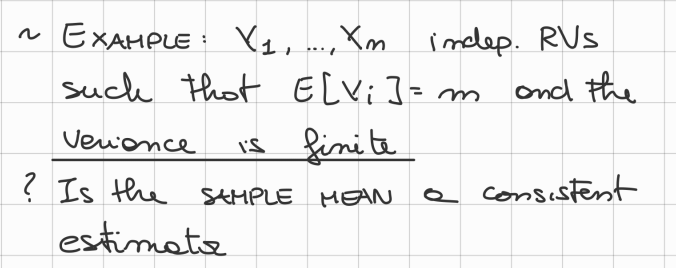 ~ EXAMPLE: X1, ..., Xn indep. RVs
such that E[Xi]= m and the
variance is finite
? Is the SAMPLE MEAN a consistent
estimator